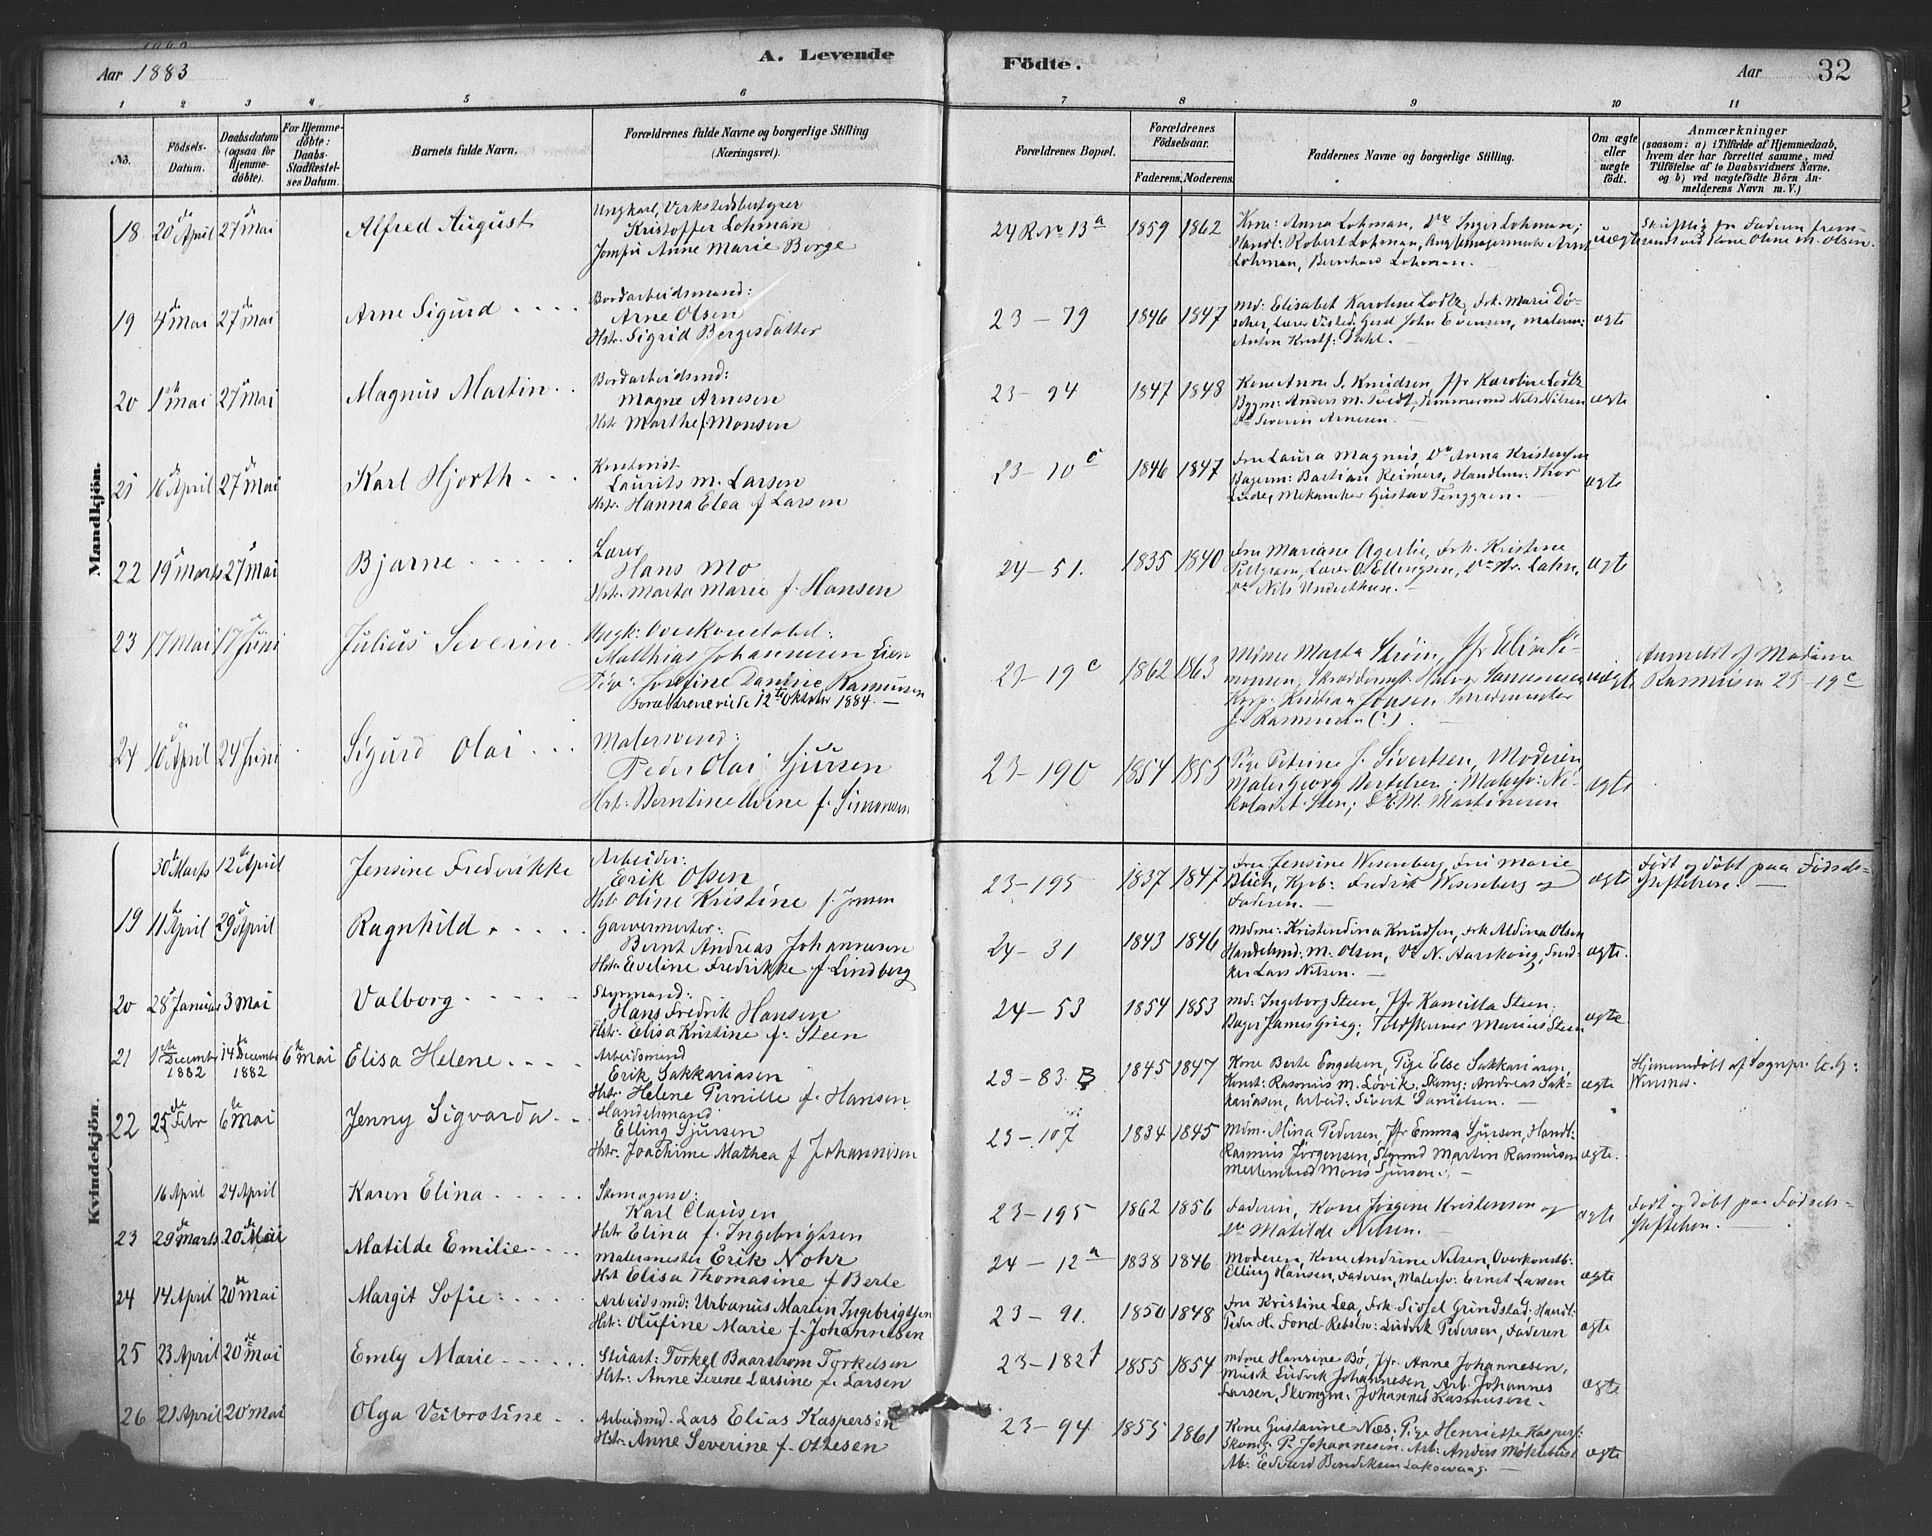 Aar 1883
A. Levende
Födte.
Aar 32
1 2 3 4 5 6 7 8 9 10 11
No.
Födsels-Datum.
Daabsdatum (ogsaa för Hjemme-döbte).
For Hjemme-döbte: Daabs-Stadfæstel-ses Datum.
Barnets fulde Navn.
Forældrenes fulde Navne og borgerlige Stilling (Næringsvei).
Forældrenes Bopæl.
Forældrenes Födselsaar.
Faderens. Moderens.
Faddernes Navne og borgerlige Stilling.
Om ægte eller uægte födt.
Anmærkninger
(saasom: a) i Tilfælde af Hjemmedaab, hvem der har forrettet samme, med Tilföielse af to Daabsvidners Navne, og b) ved uægtefödte Börn An-melderens Navn m. V.)
Mandkjön.
18 20 April 27 Mai Alfred August
Kristoffer Lohman
Jomfu Anne Marie Borge
24 R No 13a 1859 1862
Kone: Anna Lohman, Do Inger Lohman;
Handl: Robert Lohman,
Lohman, Bernhard Lohman.
uægte
Skriftlig fra Faderen
Kone Oline M. Olsen.
19 4 Mai 27 Mai Arne Sigurd
Bordarbeidsmand:
Arne Olsen
Hstr. Sigrid Bergesdatter
23-79 1846 1847
Md: Elisabet Karoline Lodtz, Frk. Marie Dö-
scher, Lærer Visted, Gesel John Evensen, Malerm:
Anton Kristf: Dahl.
ægte
20 1 Mai 27 Mai Magnus Martin
Bordarbeidsmd:
Magne Arnesen
Hstr Marthe f. Monsen
23-94 1847 1848
Kone Anne S. Knudsen, Jfr Karoline Lodtz
Bygm: Anders M. Tvedt, Tømmermd Nils Nilsen
Do Severin Arnesen
ægte
21 16 April 27 Mai Karl Hjorth
Laurits M. Larsen
Hstr. Hanna Elea f Larsen
23-10c 1846 1847
Fru Laura Magnus, Do Anna Kristensen
Bagerm: Bastian Reimers, Handlm. Thor
Lunde, Mekaniker Gustav Tenggren.
ægte
22 19 Marts 27 Mai Bjarne
Lærer
Hans Mo
Hstr. Marta Marie f. Hansen
24-51. 1835 1840
Fru Mariane Agerlie, Frk. Kristine
Lærer O. Ellingsen, Do Hr. Lahn,
Do Nils Underthun.
ægte
23 17 Mai 17 Juni Julius Severin
Ungk: Overkonstabel:
Matthias Johannesen Lien
Pige: Josefine Danine Rasmussen
Forældrene viede 12te Oktober 1884.
23-19c 1862 1863
Mdme Marta Strøm, Jfr Elise Si-
monsen, Skræddermst. Halvor
Korp: Kristian Jonsen, Smedmester
J. Rasmussen (?).
uægte
Anmeldt af Madame
Rasmussen 23-19c
24 10 April 24 Juni Sigurd Olai
Malersvend:
Peder Olai Sjursen
Hst. Berntine f. Simonsen
23-190 1854 1855
Pige Petrine J. Sivertsen, Moderen,
Maler Georg Bertelsen, Malersv: Ni-
kolai A. Sten; Do E. M. Martinesen
ægte
Kvindekjön.
30 Marts 12 April Jensine Frederikke
Arbeider:
Erik Olsen
Hstr Oline Kristine f. Jonsen
23-195 1837 1847
Fru Jensine Wesenberg, Fru Marie
Blich, Kjøb: Fredrik Wesenberg og
Faderen.
ægte
Født og døbt paa Fødsels-
stiftelsen.
19 11 April 29 April Ragnhild
Garvermester:
Bernt Andreas Johannesen
Hstr Eveline Fredrikke f. Lindberg
24-31 1843 1846
Mdme: Kristendina Knudsen, Frk Aldina Olsen
Handelsmd: M. Olsen, Do N. Aarskoug, Sned-
ker Lars Nilsen.
ægte
20 28 Januar 3 Mai Valborg
Styrmand:
Hans Fredrik Hansen
Hstr: Elisa Kristine f: Steen
24-53 1854 1853
Md: Ingeborg Steen, Jfr Kamilla Steen.
Bager James Grieg; Toldskriver Marius Steen
ægte
21 1 December 1882 14 December 1882 6 Mai Elisa Helene
Arbeidsmand
Erik Sakkariasen
Hstr: Helene Pernille f. Hansen.
23-83. B 1845 1847
Kone Berte Engelsen, Pige Else Sakkariasen,
Konst: Rasmus M. Løvik, Andreas Sak-
kariasen, Arbeid: Sivert Danielsen.
ægte
Hjemmedøbt af Sognepr:
Winsnes.
22 25 Febr 6 Mai Jenny Sigvarda
Handelsmand
Elling Sjursen
Hstr. Joachime Mathea f Johannesen
23-107 1834 1845
Mdm. Mina Pedersen, Jfr Emma Sjursen, Handl:
Rasmus Jørgensen, Styrmd Martin Rasmussen
Mons Sjursen.
ægte
16 April 24 April Karen Elina
Skomagersv:
Karl Clausen
Hstr Elina f. Ingebrigtsen
23-195 1862 1856
Faderen, Kone Jørgine Kristensen og
Do Matilde Nilsen.
ægte
Født og døbt paa Fødsels-
stiftelsen.
23 29 Marts 20 Mai Matilde Emilie
Malermester Erik Nohr
Hst Elisa Thomasine f Berle
24-12a 1838 1846
Moderen, Kone Andrine Nilsen, Overkonstb:
Elling Hansen, Faderen, Malersv: Ernst Larsen
ægte
24 14 April 20 Mai Margit Sofie
Arbeidsmd: Urbanus Martin Ingebrigtsen
Hst: Olufine Marie f. Johannesen
23-91. 1850 1848
Fru Kristine Lea, Frk Sissel Grindstad, Handl:
Peder H. Fond, Rebslm: Ludvik Pedersen, Faderen
ægte
25 23 April 20 Mai Emly Marie
Stuart: Torkel Baarstrøm Torkelsen
Hstr: Anne Serene Larsine f. Larsen
23-182f 1855 1854
Mdme Hansine Bø, Jfr. Anne Johannesen,
Musik Ludvik Johannesen, Arb. Johannes
Larsen, Skomgm: Johannes Rasmussen.
ægte
26 21 April 20 Mai Olga Veibrotine
Arbeidsmd. Lars Elias Kaspersen
Hstr: Anne Severine f. Ottesen
23-94 1855 1861
Kone Gustavine Næs, Pige Henriette Kaspers:
Skomg: P. Johannesen, Arb: Anders Møklebust
Ab: Edvard Bendiksen
ægte